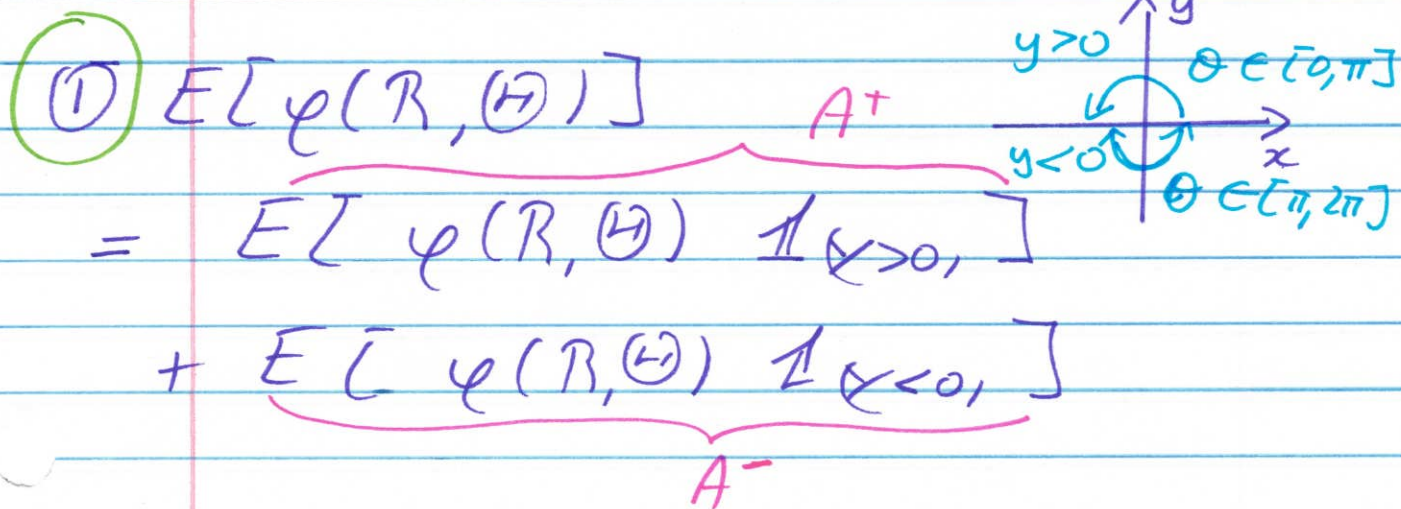 ① E[φ(R, Θ)]
A⁺
= E[φ(R, Θ) 𝟙(Y>0)]
+ E[φ(R, Θ) 𝟙(Y<0)]
A⁻
y
y>0
θ ∈ [0, π]
x
y<0
θ ∈ [π, 2π]